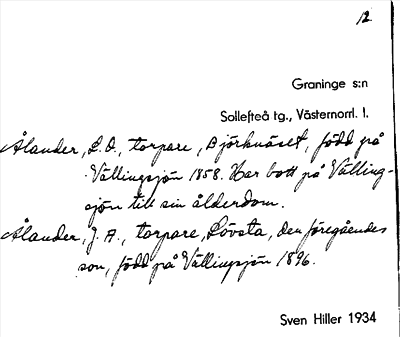 12
Graninge s:n
Sollefteå tg., Västernorrl. l.
Ålander, L. O., torpare, Björknäset, född på
Vällingsjön 1858. Har bott på Välling-
sjön till sin ålderdom.
Ålander, J. A., torpare, Lövsta, den föregåendes
son, född på Vällingsjön 1896.
Sven Hiller 1934